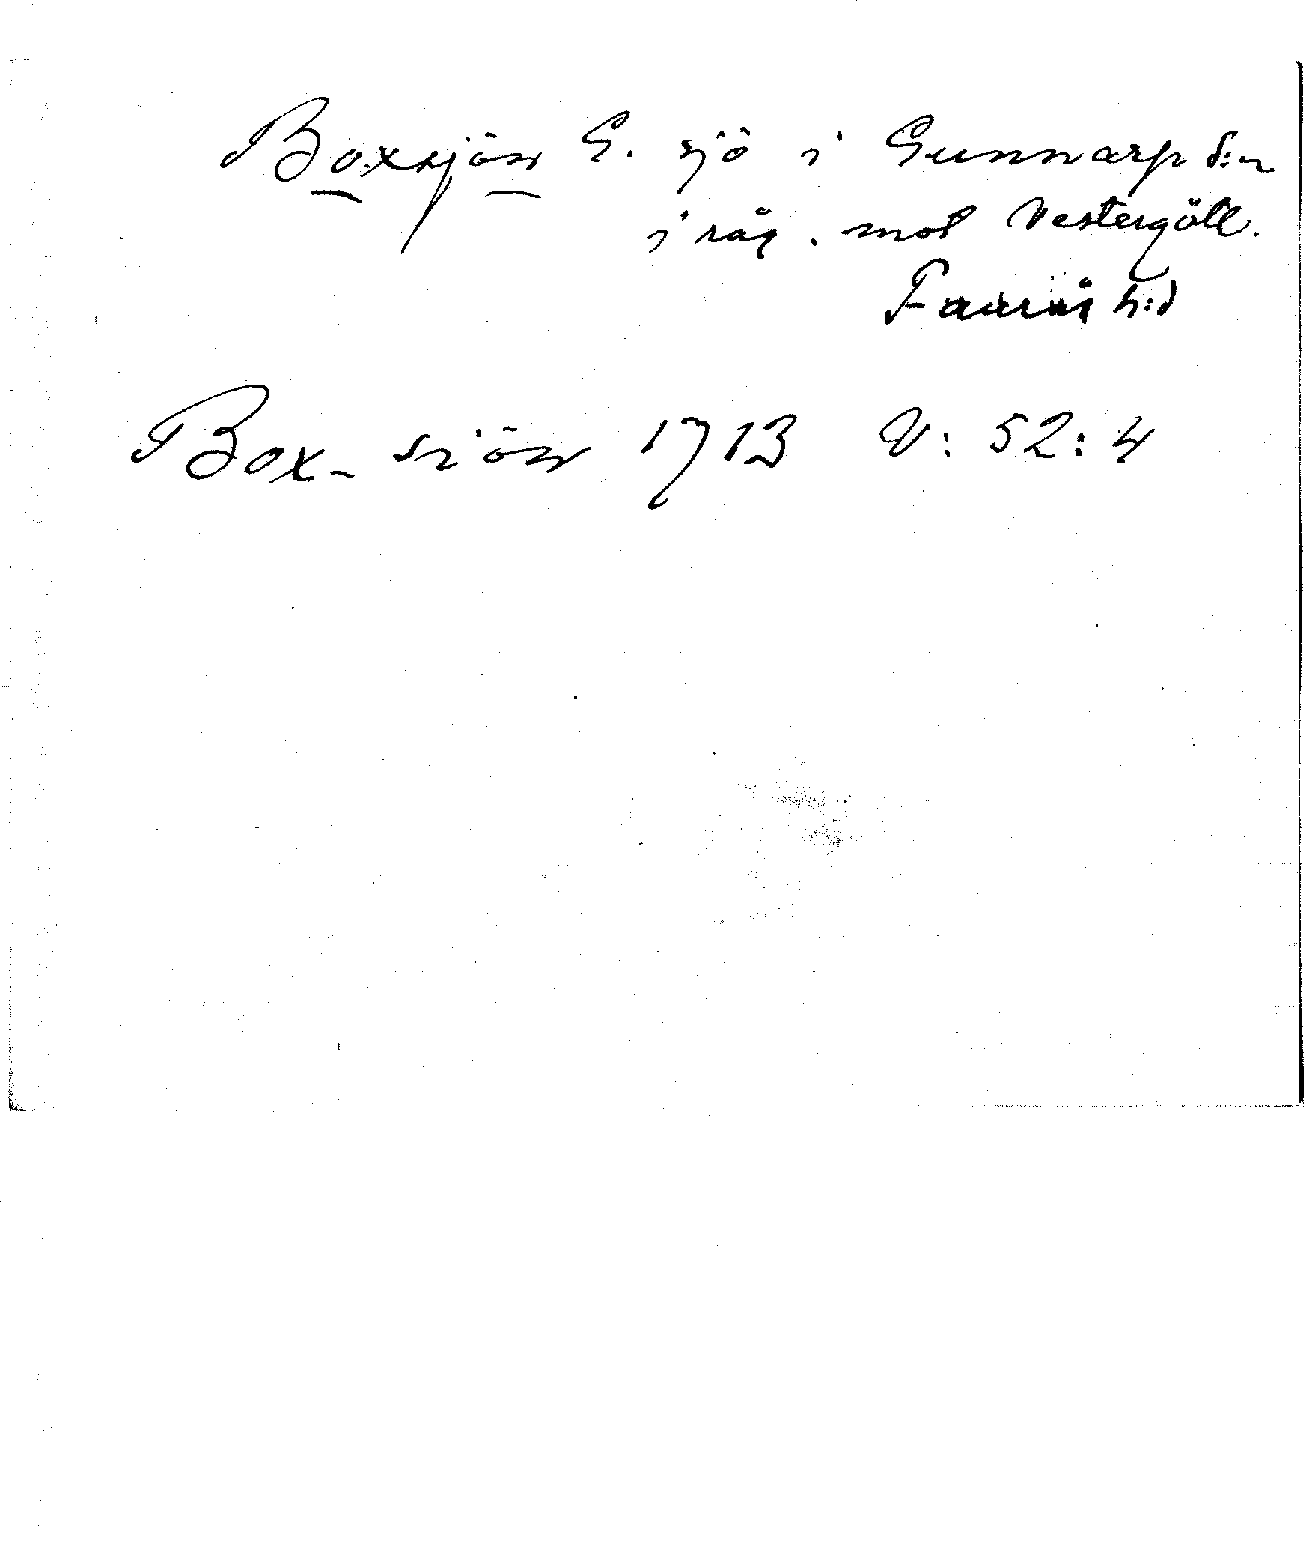 Boxsjön G. sjö i Gunnarp s:n
i råg. mot Vestergötl.
Faurås h:d
Box- siön 1713 V: 52: 4